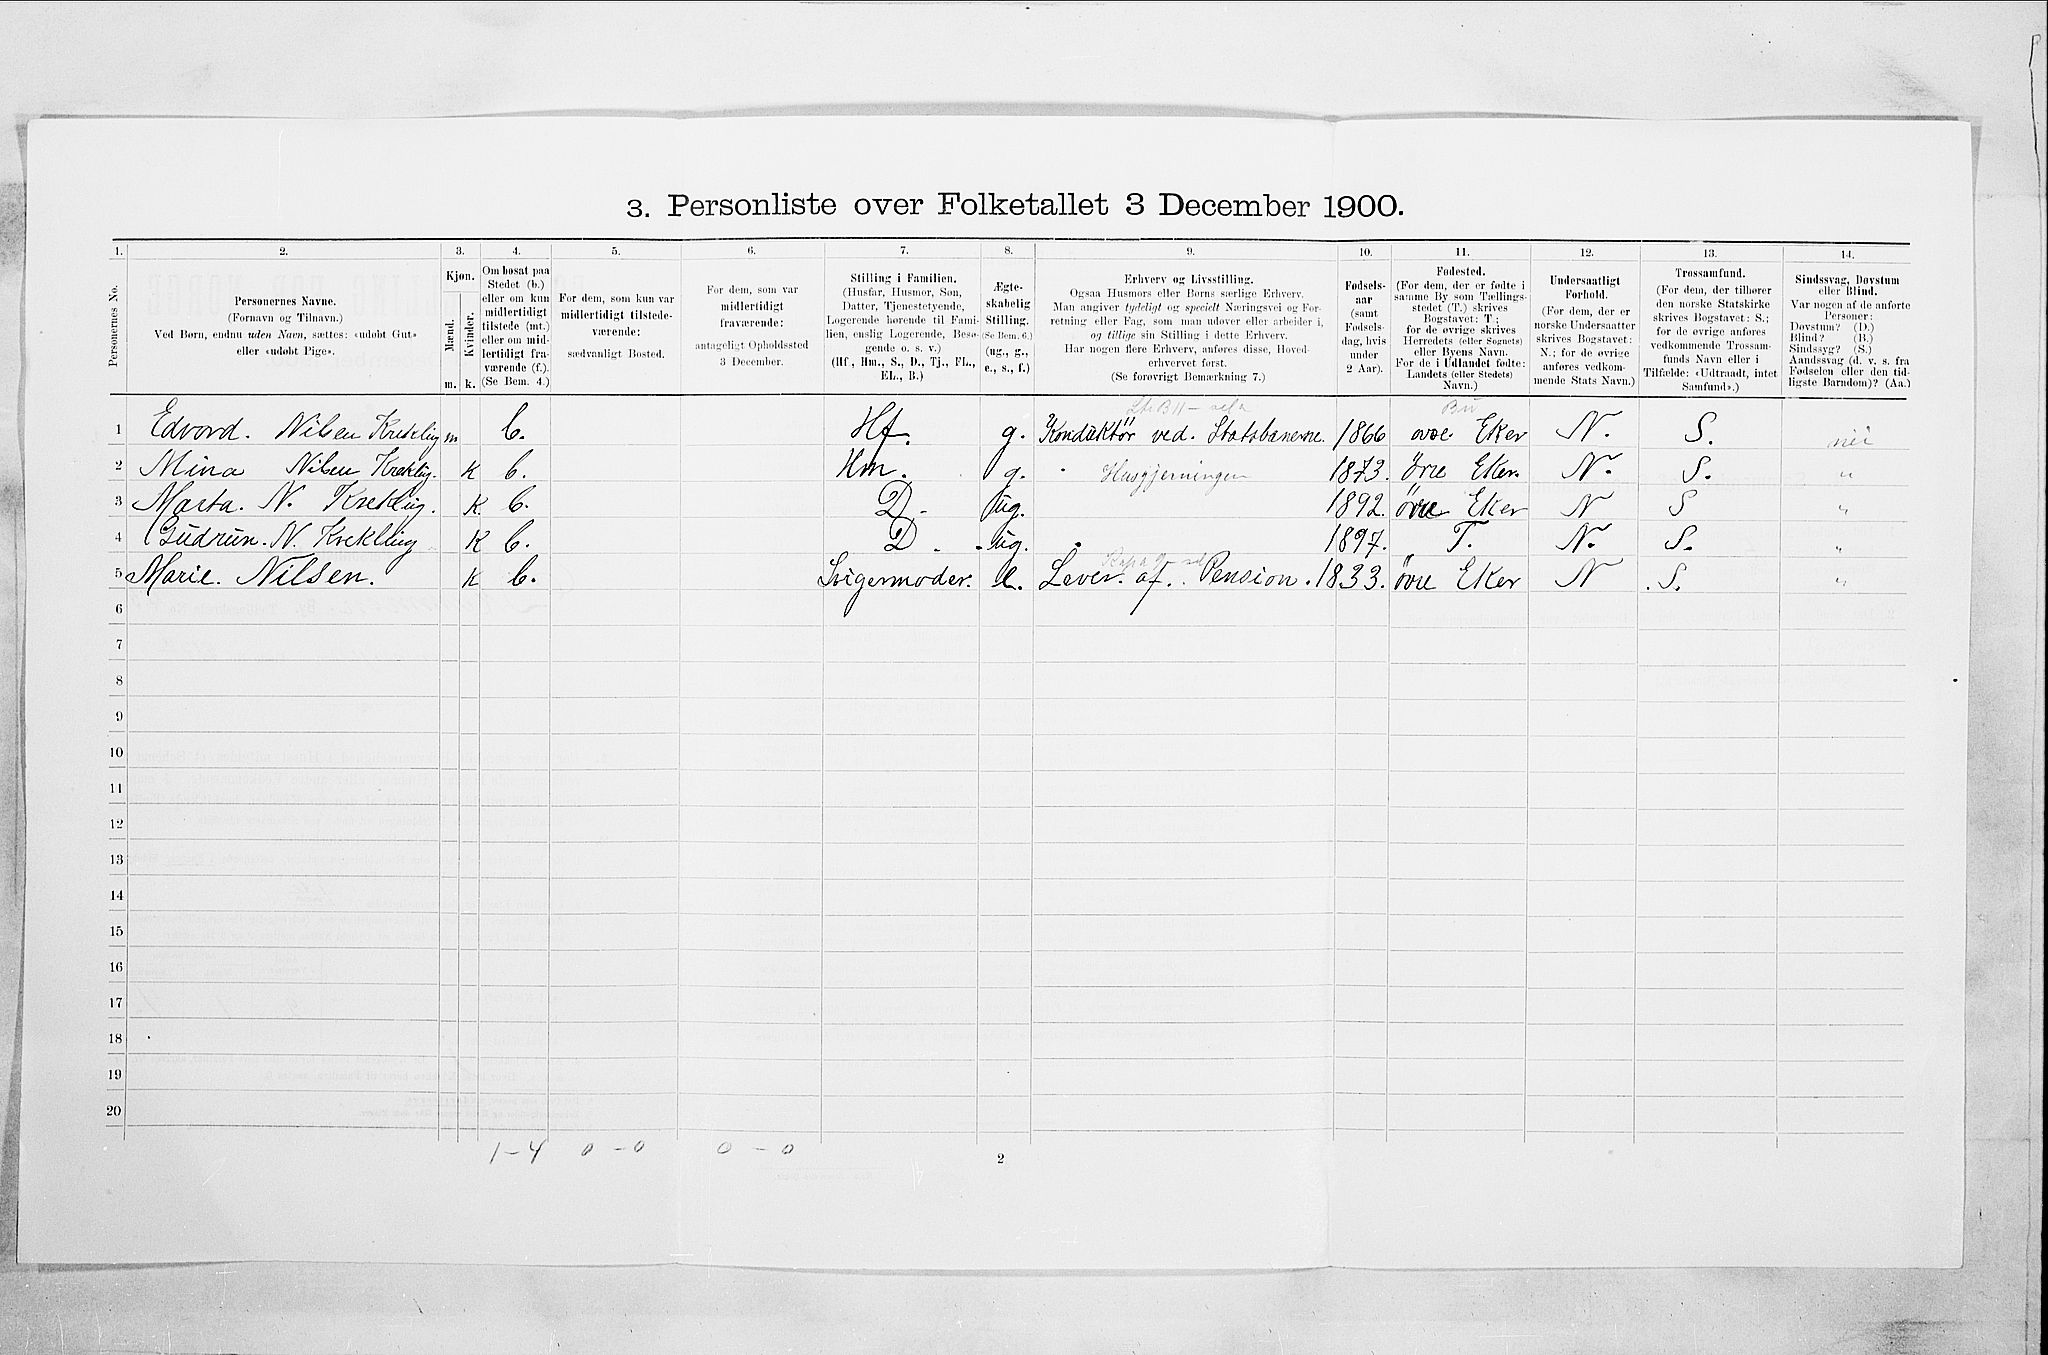 3. Personliste over Folketallet 3 December 1900.
1. 2. 3. 4. 5. 6. 7. 8. 9. 10. 11. 12. 13. 14.
Personernes No.
Personernes Navne.
(Fornavn og Tilnavn.)
Ved Børn, endnu uden Navn, sættes: «udøbt Gut»
eller «udøbt Pige».
Kjøn.
Mænd.
Kvinder.
m. k.
Om bosat paa
Stedet (b.)
eller om kun
midlertidigt
tilstede (mt.)
eller om mid-
lertidigt fra-
værende (f.).
(Se Bem. 4.)
For dem, som kun var
midlertidigt tilstede-
værende:
sædvanligt Bosted.
For dem, som var
midlertidigt
fraværende:
antageligt Opholdssted
3 December.
Stilling i Familien.
(Husfar, Husmor, Søn,
Datter, Tjenestetyende,
Logerende hørende til Fami-
lien, enslig Logerende, Besø-
gende o. s. v.)
(Hf., Hm., S., D., Tj., FL.,
EL., B.)
Ægte-
skabelig
Stilling.
(Se Bem. 6.)
(ug., g.,
e., s., f.)
Erhverv og Livsstilling.
Ogsaa Husmors eller Børns særlige Erhverv.
Man angiver tydeligt og specielt Næringsvei og For-
retning eller Fag, som man udøver eller arbeider i,
og tillige sin Stilling i dette Erhverv.
Har nogen flere Erhverv, anføres disse, Hoved-
erhvervet først.
(Se forøvrigt Bemærkning 7.)
Fødsels-
aar
(samt
Fødsels-
dag, hvis
under
2 Aar).
Fødested.
(For dem, der er fødte i
samme By som Tællings-
stedet (T.) skrives
Bogstavet: T.;
for de øvrige skrives
Herredets (eller Sognets)
eller Byens Navn.
For de i Udlandet fødte:
Landets (eller Stedets)
Navn.)
Undersaatligt
Forhold.
(For dem, der er
norske Undersaatter
skrives Bogstavet:
N.; for de øvrige
anføres vedkom-
mende Stats Navn.)
Trossamfund.
(For dem, der tilhører
den norske Statskirke
skrives Bogstavet: S.;
for de øvrige anføres
vedkommende Trossam-
funds Navn eller i
Tilfælde: «Udtraadt, intet
Samfund».)
Sindssvag, Døvstum
eller Blind.
Var nogen af de anførte
Personer:
Døvstum? (D.)
Blind? (B.)
Sindssyg? (S.)
Aandssvag (d. v. s. fra
Fødselen eller den tid-
ligste Barndom)? (Aa.)
1 Edvard. Nilsen Krekling m b. Hf. g. Konduktør ved. Statsbanerne. 1866 øvre Eker N. S. nei
2 Mina Nilsen Krekling. k b. Hm. g. Husgjerningen 1873. Øvre Eker. N. S. "
3 Marta. N. Krekling. K. b. D. ug. 1892. øvre Eker N S "
4 Gudrun. N. Krekling K b. D. ug. 1897. T. N. S. "
5 Marie. Nilsen. K b. Svigermoder. e. Lever. af. Pension. 1833. øvre Eker N S. "
6
7
8
9
10
11
12
13
14
15
16
17
18
19
20
1-4 0-0 0-0
2